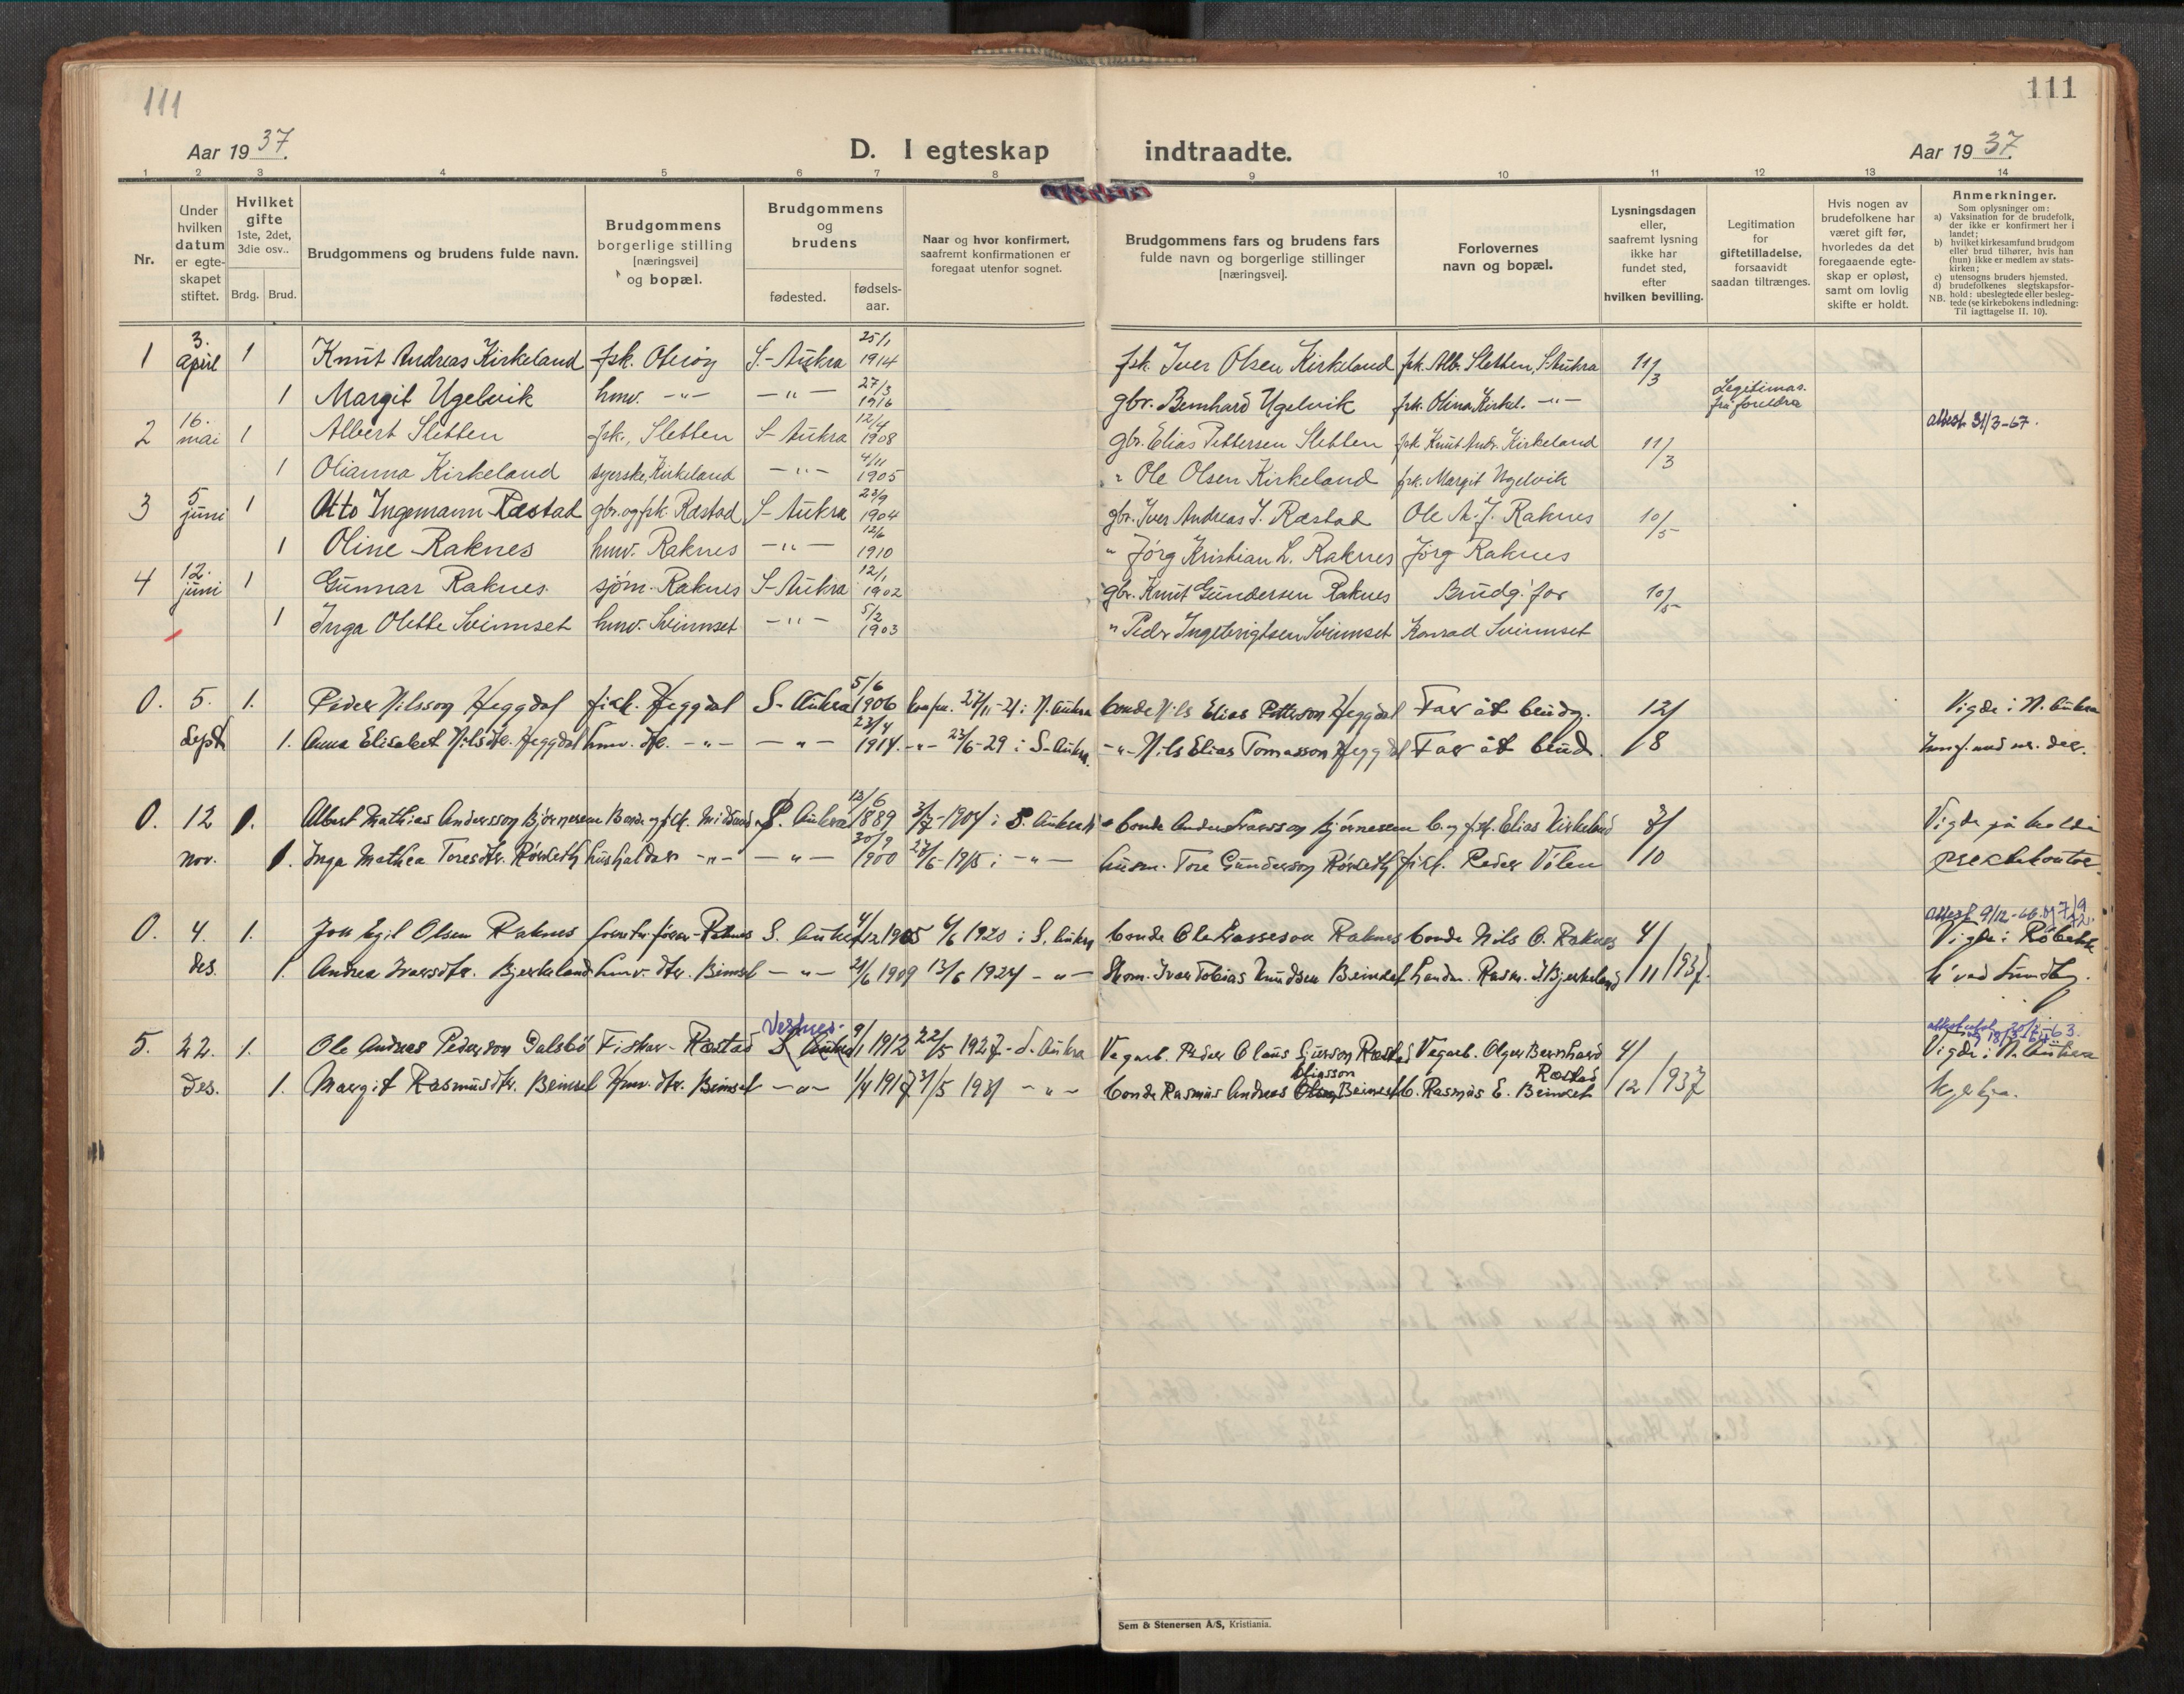 111
111
Aar 1937.
D. I egteskap indtraadte.
Aar 1937.
1 2 3 4 5 6 7 8 9 10 11 12 13 14
Nr.
Under hvilken datum er egte-skapet stiftet.
Hvilket gifte 1ste, 2det, 3die osv..
Brdg. Brud.
Brudgommens og brudens fulde navn.
Brudgommens borgerlige stilling [næringsvei] og bopæl.
Brudgommens og brudens
fødested.
fødsels-aar.
Naar og hvor konfirmert, saafremt konfirmationen er foregaat utenfor sognet.
Brudgommens fars og brudens fars fulde navn og borgerlige stillinger [næringsvei].
Forlovernes navn og bopæl.
Lysningsdagen eller, saafremt lysning ikke har fundet sted, efter hvilken bevilling.
Legitimation for giftetilladelse, forsaavidt saadan tiltrænges.
Hvis nogen av brudefolkene har været gift før, hvorledes da det foregaaende egte-skap er opløst, samt om lovlig skifte er holdt.
Anmerkninger.
Som oplysninger om:
a) Vaksination for de brudefolk, der ikke er konfirmert her i landet;
b) hvilket kirkesamfund brudgom eller brud tilhører, hvis han (hun) ikke er medlem av stats-kirken;
c) utensogns bruders hjemsted.
d) brudefolkenes slegtskapsfor-hold: ubeslegtede eller besleg-tede (se kirkebokens indledning: Til iagttagelse II. 10).
NB.
1 3. april 1 Knut Andreas Kirkeland fsk. Oterøy S-Aukra 25/1 1914 fsk. Iver Olsen Kirkeland fsk. Alb. Sletten, S. Aukra 11/3
1 Margit Ugelvik hmv. -"- -"- 27/3 1916 gbr. Bernhard Ugelvik frk. Olina Kirkel. -"- Legitimas. frå foreldra
2 16. mai 1 Albert Sletten fsk., Sletten S-Aukra 12/4 1908 gbr. Elias Pettersen Sletten fsk Knut Andr. Kirkeland 11/3 attest 31/3-67.
1 Olianna Kirkeland syerske, Kirkeland -"- 4/11 1905 " Ole Olsen Kirkeland frk. Margit Ugelvik
3 5 juni 1 Otto Ingemann Ræstad gbr. og fsk. Ræstad S-Aukra 23/9 1904 gbr. Iver Andreas I. Ræstad Ole A. J. Raknes 10/5
1 Oline Raknes hmv. Raknes -"- 12/6 1910 " Jørg Kristian L. Raknes Jørg Raknes
4 12. juni 1 Gunnar Raknes sjøm. Raknes S-Aukra 12/1 1902 gbr. Knut Gundersen Raknes Brudg. far 10/5
1 Inga Olette Svinnset hmv. Svinnset -"- 5/2 1903 " Peder Ingebrigtsen Svinnset Konrad Svinnset
0. 5. 1. Peder Nilsson Heggdal fisk. Heggdal S-Aukra 5/6 1906 konf. 27/11-21 i N. Aukra bonde Nils Elias Petterson Heggdal Far åt brudg. 12/ Vigde i N. Aukra
Sept 1. Anna Elisabet Nilsdtr. Heggdal hmv. dtr. -"- -"- 23/4 1914. -"- 23/6-29 i S-Aukra. -"- Nils Elias Tomasson Heggdal Far åt brud. /8
0. 12 1. Albert Mathias Andersson Bjørnerem Bonde og fisk. Midsund S. Aukra 12/6 1889 3/7-1904 i S. Aukra bonde Anders Larsson Bjørnerem b. og fisk. Elias Kirkeland 8/ Vigde på Molde
nov. 1. Inga Mathea Toresdtr. Rørsethy hushalder -"- -"- 30/9 1900 27/6-1915 i -"- husm. Tore Gunderson Rørsethy fisk. Peder Vølen /10 prestekontor.
0. 4. 1. Jon Egil Olsen Raknes -Raknes S. Aukra 4/12 1905 6/6 1920 i S. Aukra bonde Ole Lasseson Raknes bonde Nils O. Raknes 4/ attest 9/12 Vigde i Røbekk
des. 1. Andrea Ivarsdtr. Bjerkeland hmv. dtr. Beinset -"- 21/6 1909 13/6 1924 -"- Ivar Tobias Knudsen Beinset Rasm. I. Bjerkeland /11 1937. ved Sundby.
5. 22. 1. Ole Andreas Pederson Dalsbø Fiskar-Ræstad Vestnes. S. Aukra 9/1 1912 22/5 1927 - S. Aukra Vegarb. Peder Claus Sjurson Ræstad Vegarb. Olger Bernhard Ræstad 4/ Vigde i N. Aukra
des. 1. Margit Rasmusdtr. Beinset Hmv. dtr. Beinset -"- 1/4 1917 31/5 1931 -"- bonde Rasmus Andreas Eliasson Beinset b. Rasmus E. Beinset /12 1937 kyrkja.
Sem & Stenersen A/S, Kristiania.